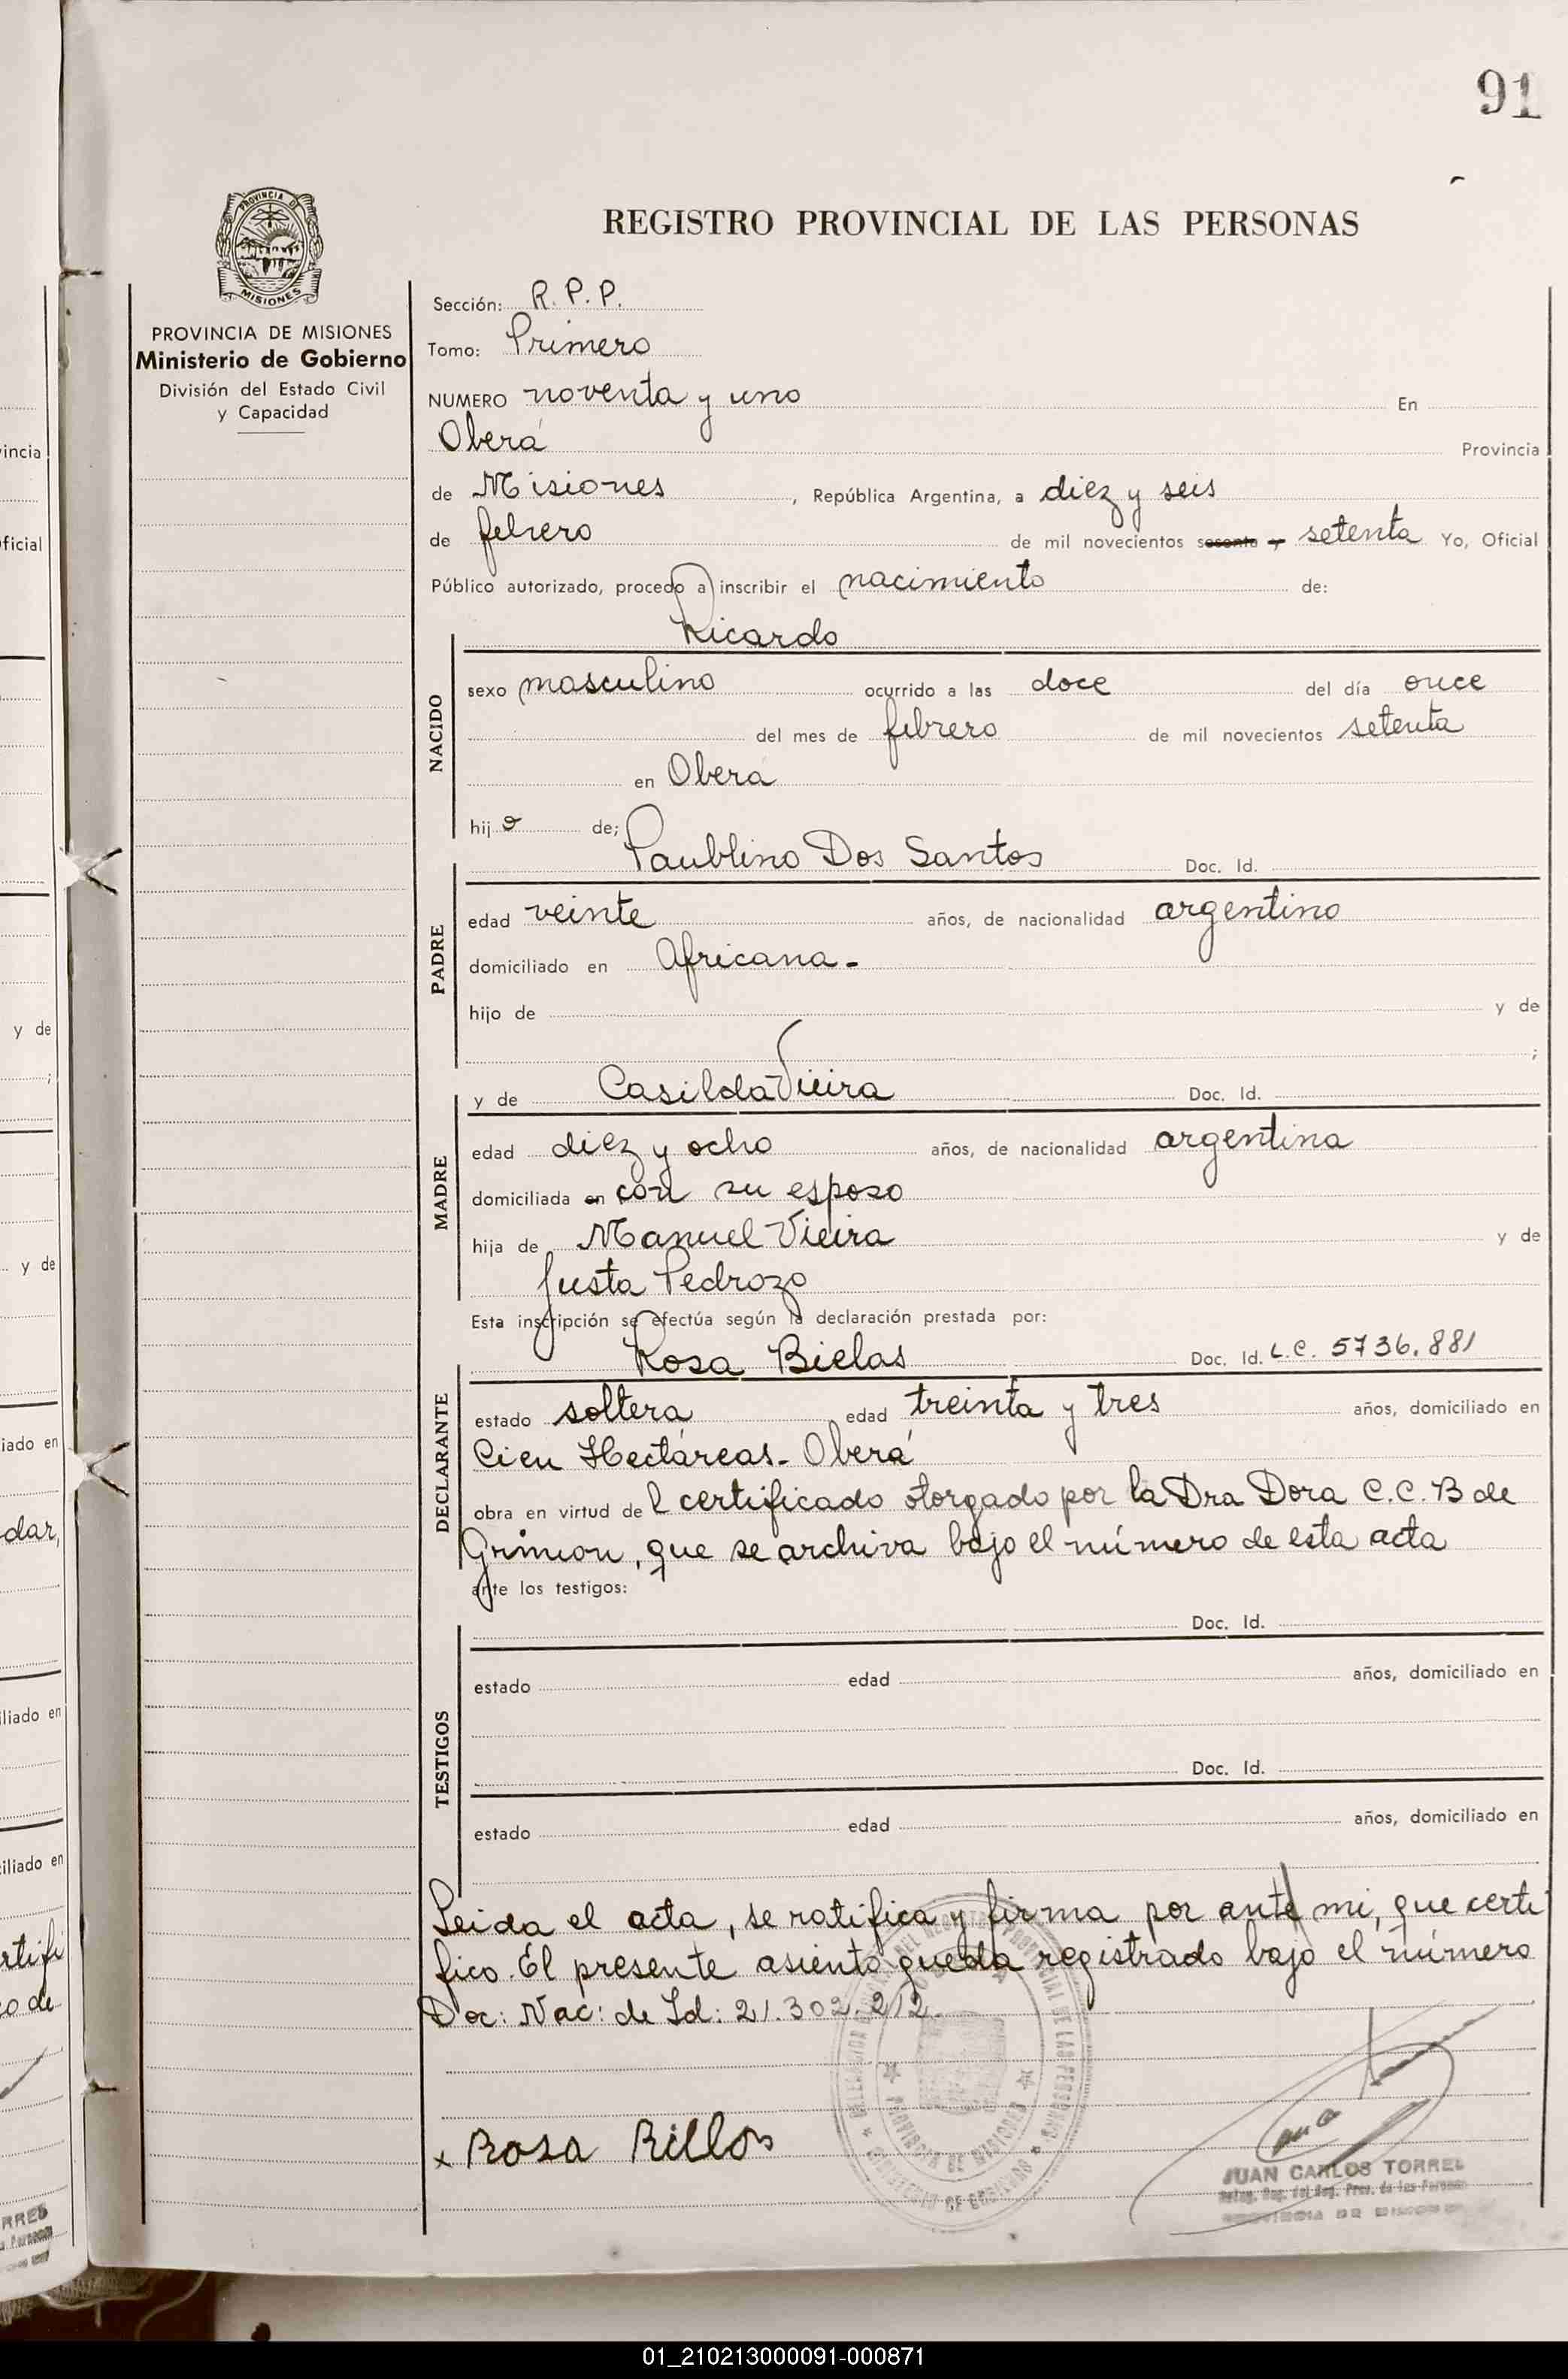 91
REGISTRO PROVINCIAL DE LAS PERSONAS
PROVINCIA DE
MISIONES
PROVINCIA DE MISIONES
Ministerio de Gobierno
División del Estado Civil
y Capacidad
Sección: R. P. P.
Tomo: Primero
NUMERO noventa y uno En
Oberá Provincia
de Misiones, República Argentina, a diez y seis
de febrero de mil novecientos sesenta y setenta Yo, Oficial
Público autorizado, procedo a inscribir el nacimiento de:
Ricardo
NACIDO
sexo masculino ocurrido a las doce del día once
del mes de febrero de mil novecientos setenta
en Oberá
hijo de;
Paublino Dos Santos Doc. Id.
PADRE
edad veinte años, de nacionalidad argentino
domiciliado en Africana.-
hijo de y de
;
y de Casilda Vieira Doc. Id.
MADRE
edad diez y ocho años, de nacionalidad argentina
domiciliada en con su esposo
hija de Manuel Vieira y de
Justa Pedrozo
Esta inscripción se efectúa según la declaración prestada por:
Rosa Bielas Doc. Id. L.C. 5736.881
DECLARANTE
estado soltera edad treinta y tres años, domiciliado en
Cien Hectáreas- Oberá
obra en virtud del certificado otorgado por la Dra Dora C.C. B de
Grimon, que se archiva bajo el número de esta acta
ante los testigos:
Doc. Id.
TESTIGOS
estado edad años, domiciliado en
Doc. Id.
estado edad años, domiciliado en
Leida el acta, se ratifica y firma por ante mi, que certi
fico. El presente asiento queda registrado bajo el número
Doc: Nac: de Id: 21.302.212.
x Rosa Billos
JUAN CARLOS TORRES
PROVINCIA DE MISIONES
01_210213000091-000871